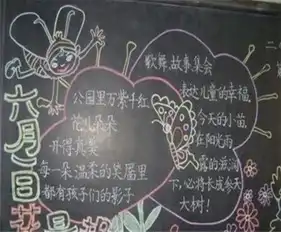 六月一日
公园里万紫千红,
花儿朵朵
开得真美
每一朵温柔的笑厣里
都有孩子们的影子
歌舞、故事集会
表达儿童的幸福,
今天的小苗,
在阳光雨
露的滋润
下,必将长成参天
大树!